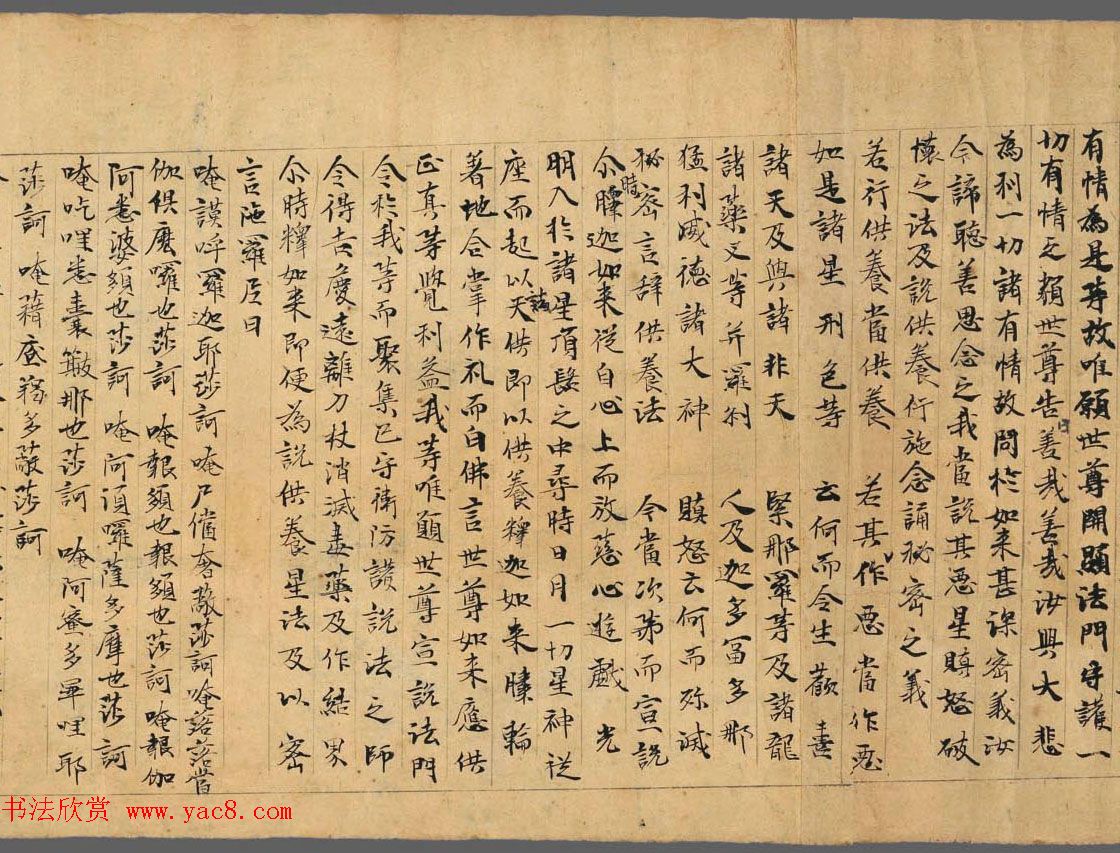 有情為是等故唯願世尊開顯法門守護一
切有情之類世尊告曰善哉善哉汝興大悲
為利一切諸有情故問於如来甚深密義汝
今諦聽善思念之我當說其惡星瞋怒破
壞之法及說供養行施念誦秘密之義
若行供養當供養 若其作惡當作惡
如是諸星刑色等 云何而令生歡喜
諸天及與諸非天 緊那羅等及諸龍
諸藥叉等并羅刹 人及迦多冨多那
猛利威德諸大神 瞋怒云何而弥滅
秘密言辞供養法 今當次第而宣說
尒時釋迦如来從自心上而放慈心遊戲光
明入於諸星頂髻之中尋時日月一切星神從
座而起以天諸供即以供養釋迦如来膝輪
著地合掌作礼而白佛言世尊如来應供
正真等覺利益我等唯願世尊宣說法門
令於我等而聚集已守衛防讃說法之師
令得吉慶遠離刀杖消滅毒藥及作結界
尒時釋如来即便為說供養星法及以密
言陁羅尼曰
唵謨呼羅迦耶莎訶唵尸儅奢蔽莎訶唵諾當
伽俱麽囉也莎訶 唵報頞也報頞也莎訶唵報伽
阿悉婆頞也莎訶 唵阿須囉薩多摩也莎訶
唵吃哩悉囊皺那也莎訶 唵阿蜜多畢哩耶
莎訶 唵藉底稱多蔽莎訶
书法欣赏 www.yac8.com